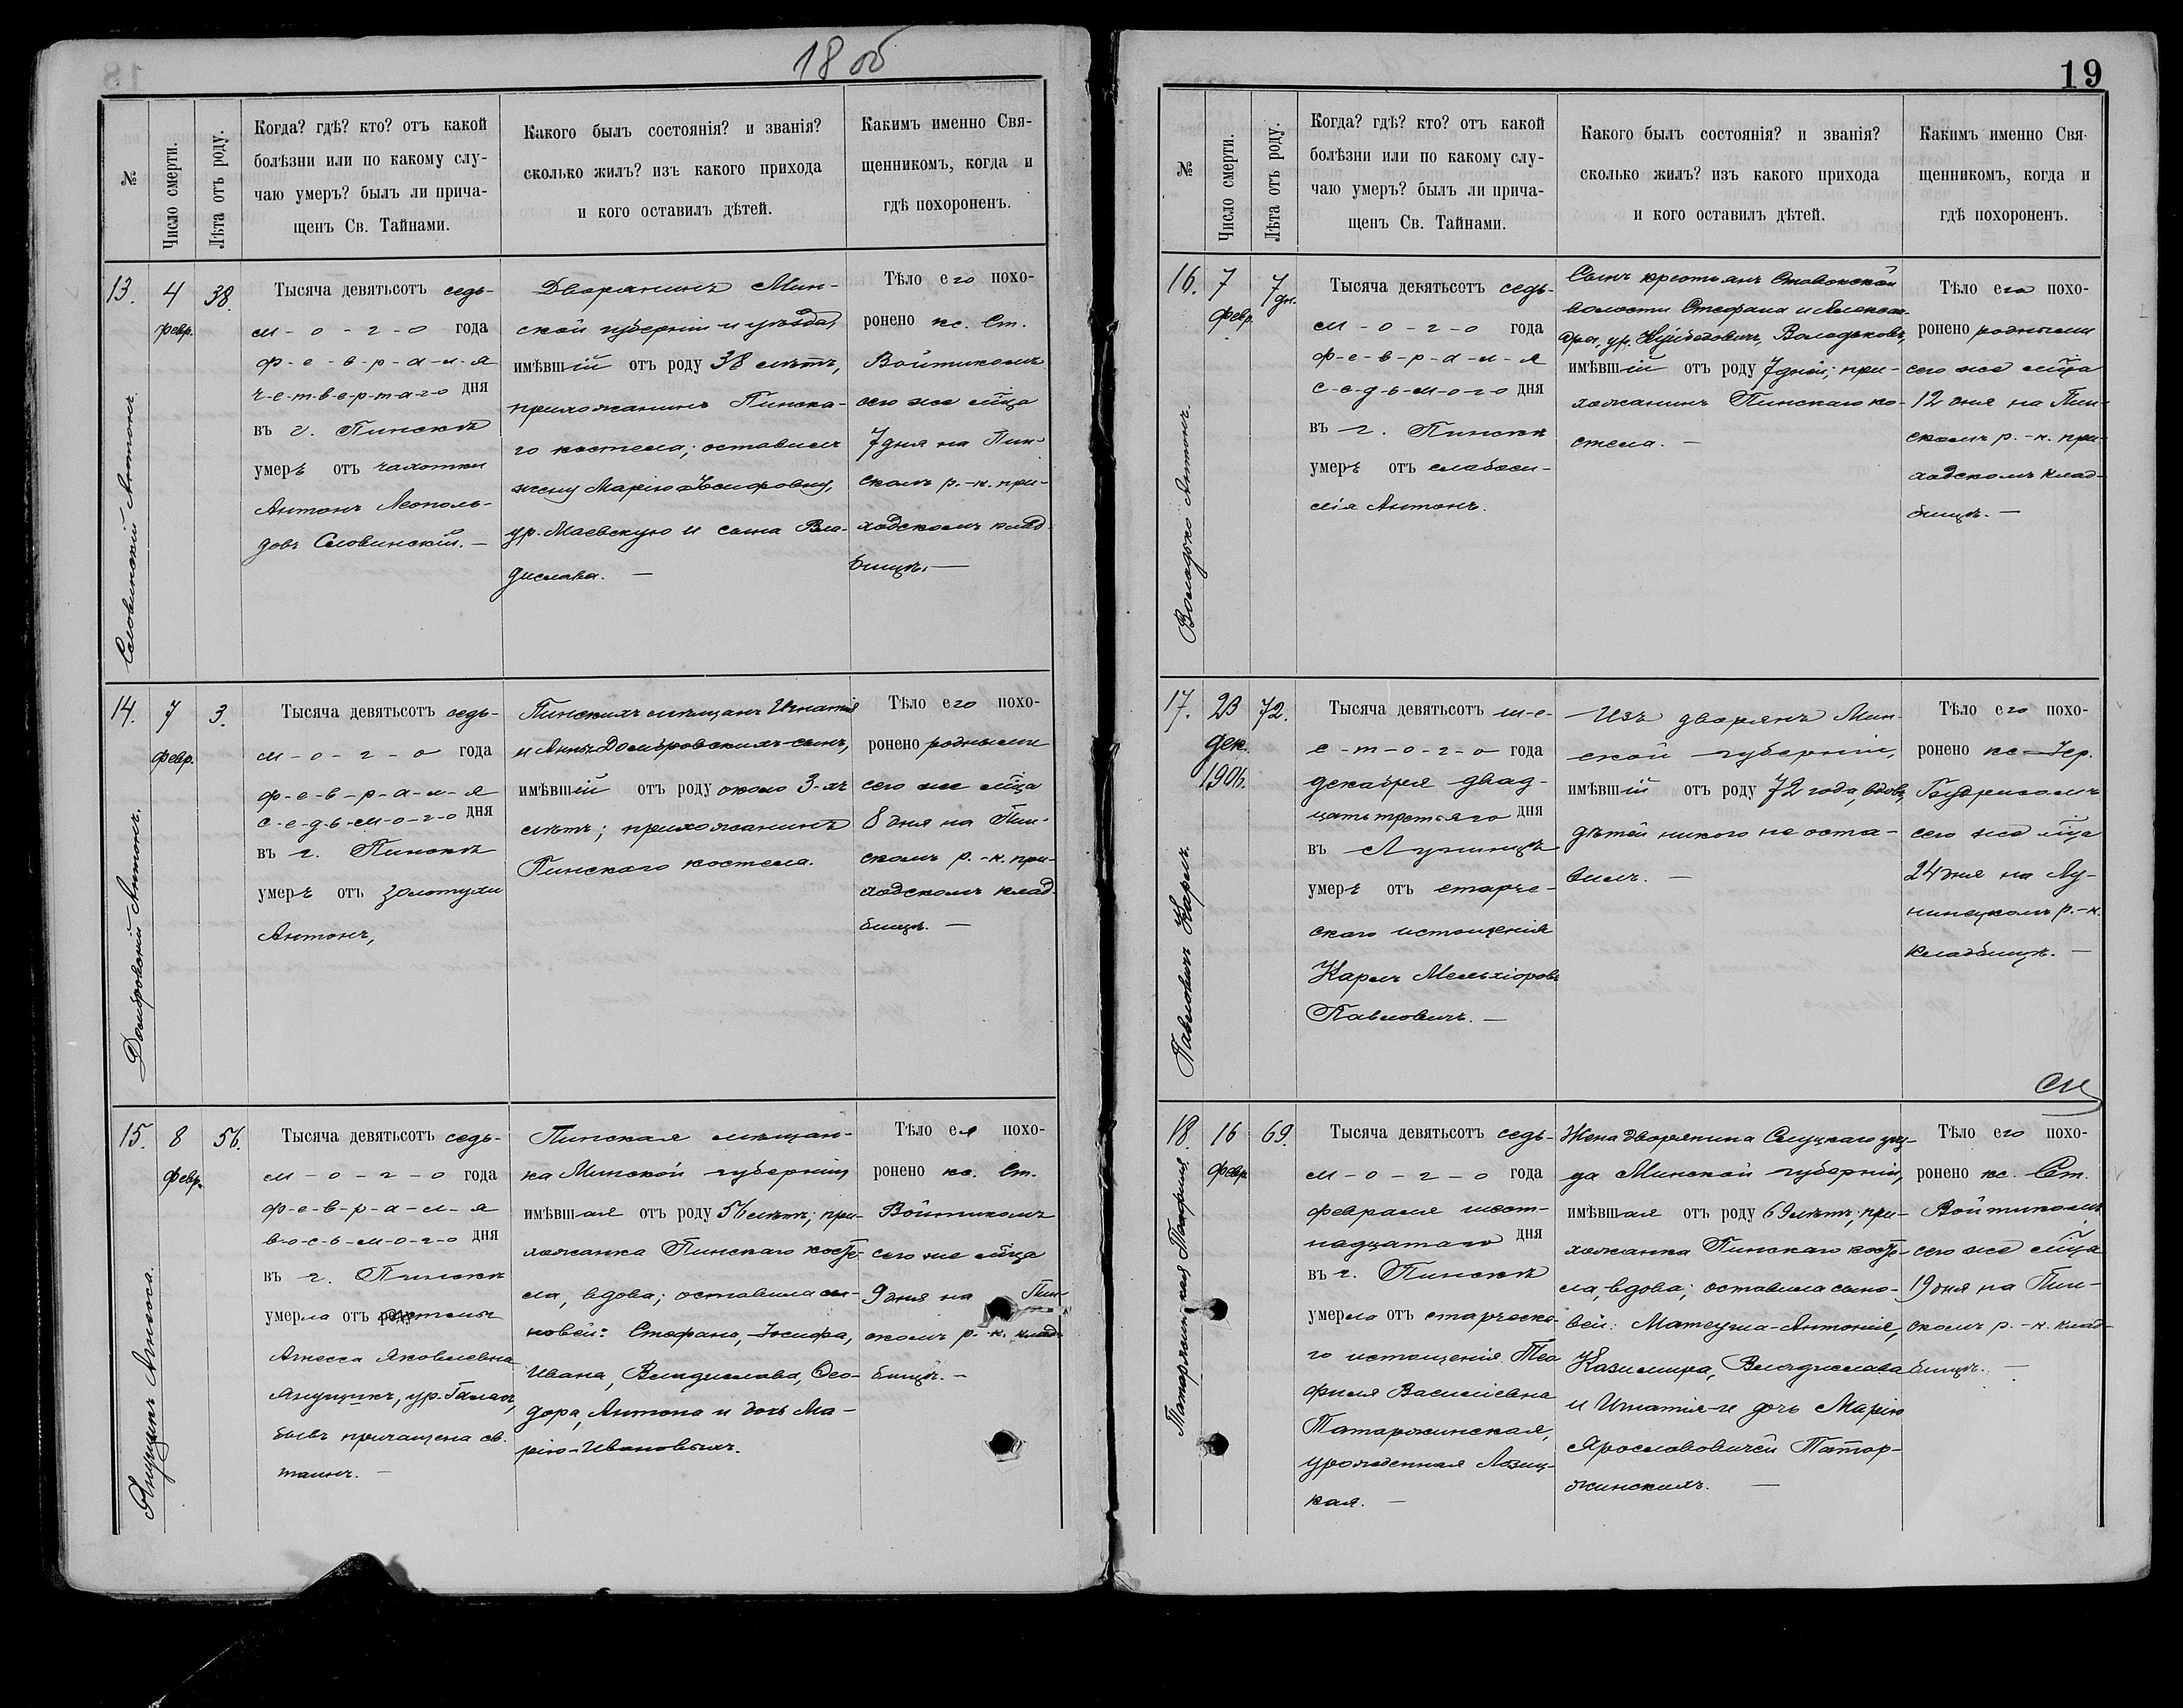 18 об
№
Число смерти.
Лѣта отъ роду.
Когда? гдѣ? кто? отъ какой
болѣзни или по какому слу-
чаю умеръ? былъ ли прича-
щенъ Св. Тайнами.
Какого былъ состоянія? и званія?
сколько жилъ? изъ какого прихода
и кого оставилъ дѣтей.
Какимъ именно Свя-
щенникомъ, когда и
гдѣ похороненъ.
13.
Словинскій Антонъ.
4
февр.
38.
Тысяча девятьсотъ седь-
м-о-г-о года
ф-е-в-р-а-л-я
ч-е-т-в-е-р-т-а-г-о дня
въ г. Пинскѣ
умеръ отъ чахотки
Антонъ Леополь-
довъ Словинскій. —
Дворянинъ Мин-
ской губерніи и уѣзда,
имѣвшій отъ роду 38 лѣтъ,
прихожанинъ Пинска-
го костела; оставилъ
жену Марію Іосифовну,
ур. Маевскую и сына Вла-
дислава. —
Тѣло его похо-
ронено кс. Ст.
Войтикомъ
сего же м̃ца
7 дня на Пин-
скомъ р.-к. при-
ходскомъ клад-
бищѣ. —
14.
Домбровскій Антонъ.
7
февр.
3.
Тысяча девятьсотъ седь-
м-о-г-о года
ф-е-в-р-а-л-я
с-е-д-ь-м-о-г-о дня
въ г. Пинскѣ
умеръ отъ золотухи
Антонъ,
Пинскихъ мѣщанъ Игнатія
и Анны Домбровскихъ-сынъ,
имѣвшій отъ роду около 3-хъ
лѣтъ; прихожанинъ
Пинскаго костела.
Тѣло его похо-
ронено родными
сего же м̃ца
8 дня на Пин-
скомъ р.-к. при-
ходскомъ клад-
бищѣ. —
15.
Агнесса.
8
февр.
56.
Тысяча девятьсотъ седь-
м-о-г-о года
ф-е-в-р-а-л-я
в-о-с-ь-м-о-г-о дня
въ г. Пинскѣ
умерла отъ
Агнесса Яковлевна
ур. Галахъ,
бывъ причащена св.
таинъ. —
Пинская мѣщан-
ка Минской губерніи,
имѣвшая отъ роду 56 лѣтъ; при-
хожанка Пинскаго косте-
ла, вдова; оставила сы-
новей: Стефана, Іосифа,
Ивана, Владислава, Ѳео-
дора, Антона и дочь Ма-
рію-Ивановыхъ.
Тѣло ея похо-
ронено кс. Ст.
Войтикомъ
сего же м̃ца
9 дня на Пин-
скомъ р.-к. клад-
бищѣ. —
19
№
Число смерти.
Лѣта отъ роду.
Когда? гдѣ? кто? отъ какой
болѣзни или по какому слу-
чаю умеръ? былъ ли прича-
щенъ Св. Тайнами.
Какого былъ состоянія? и званія?
сколько жилъ? изъ какого прихода
и кого оставилъ дѣтей.
Какимъ именно Свя-
щенникомъ, когда и
гдѣ похороненъ.
16.
Володько Антонъ.
7
февр.
7 дн.
Тысяча девятьсотъ седь-
м-о-г-о года
ф-е-в-р-а-л-я
с-е-д-ь-м-о-г-о дня
въ г. Пинскѣ
умеръ отъ слабоси-
лія Антонъ.
Сынъ крестьянъ Ставокской
волости Стефана и Алексан-
дры, ур. Володьковъ,
имѣвшій отъ роду 7 дней; при-
хожанинъ Пинскаго ко-
стела. —
Тѣло его похо-
ронено родными
сего же м̃ца
12 дня на Пин-
скомъ р.-к. при-
ходскомъ клад-
бищѣ. —
17.
Павловичъ Карлъ.
23
дек.
1906.
72.
Тысяча девятьсотъ ш-е-
с-т-о-г-о года
декабря двад-
цать третьяго дня
въ Лунинцѣ
умеръ отъ старче-
скаго истощенія
Карлъ Мельхіоровъ
Павловичъ. —
Изъ дворянъ Мин-
ской губерніи,
имѣвшій отъ роду 72 года, вдовъ,
дѣтей никого не оста-
вилъ. —
Тѣло его похо-
ронено кс. Іер.
сего же м̃ца
24 дня на Лу-
нинецкомъ р.-к.
кладбищѣ. —
18
Татаржинская Теофиля.
16
февр.
69.
Тысяча девятьсотъ седь-
м-о-г-о года
февраля шест-
надцатаго дня
въ г. Пинскѣ
умерла отъ старческа-
го истощенія Тео-
филя Василіевна
Татаржинская,
урожденная Лозиц-
кая. —
Жена дворянина Слуцкаго уѣз-
да Минской губерніи,
имѣвшая отъ роду 69 лѣтъ; при-
хожанка Пинскаго косте-
ла, вдова; оставила сыно-
вей: Матеуша-Антонія,
Казимира, Владислава
и Игнатія-и дочь Марію
Ярославовичей Татар-
жинскихъ. —
Тѣло его похо-
ронено кс. Ст.
Войтикомъ
сего же м̃ца
19 дня на Пин-
скомъ р.-к. клад-
бищѣ. —